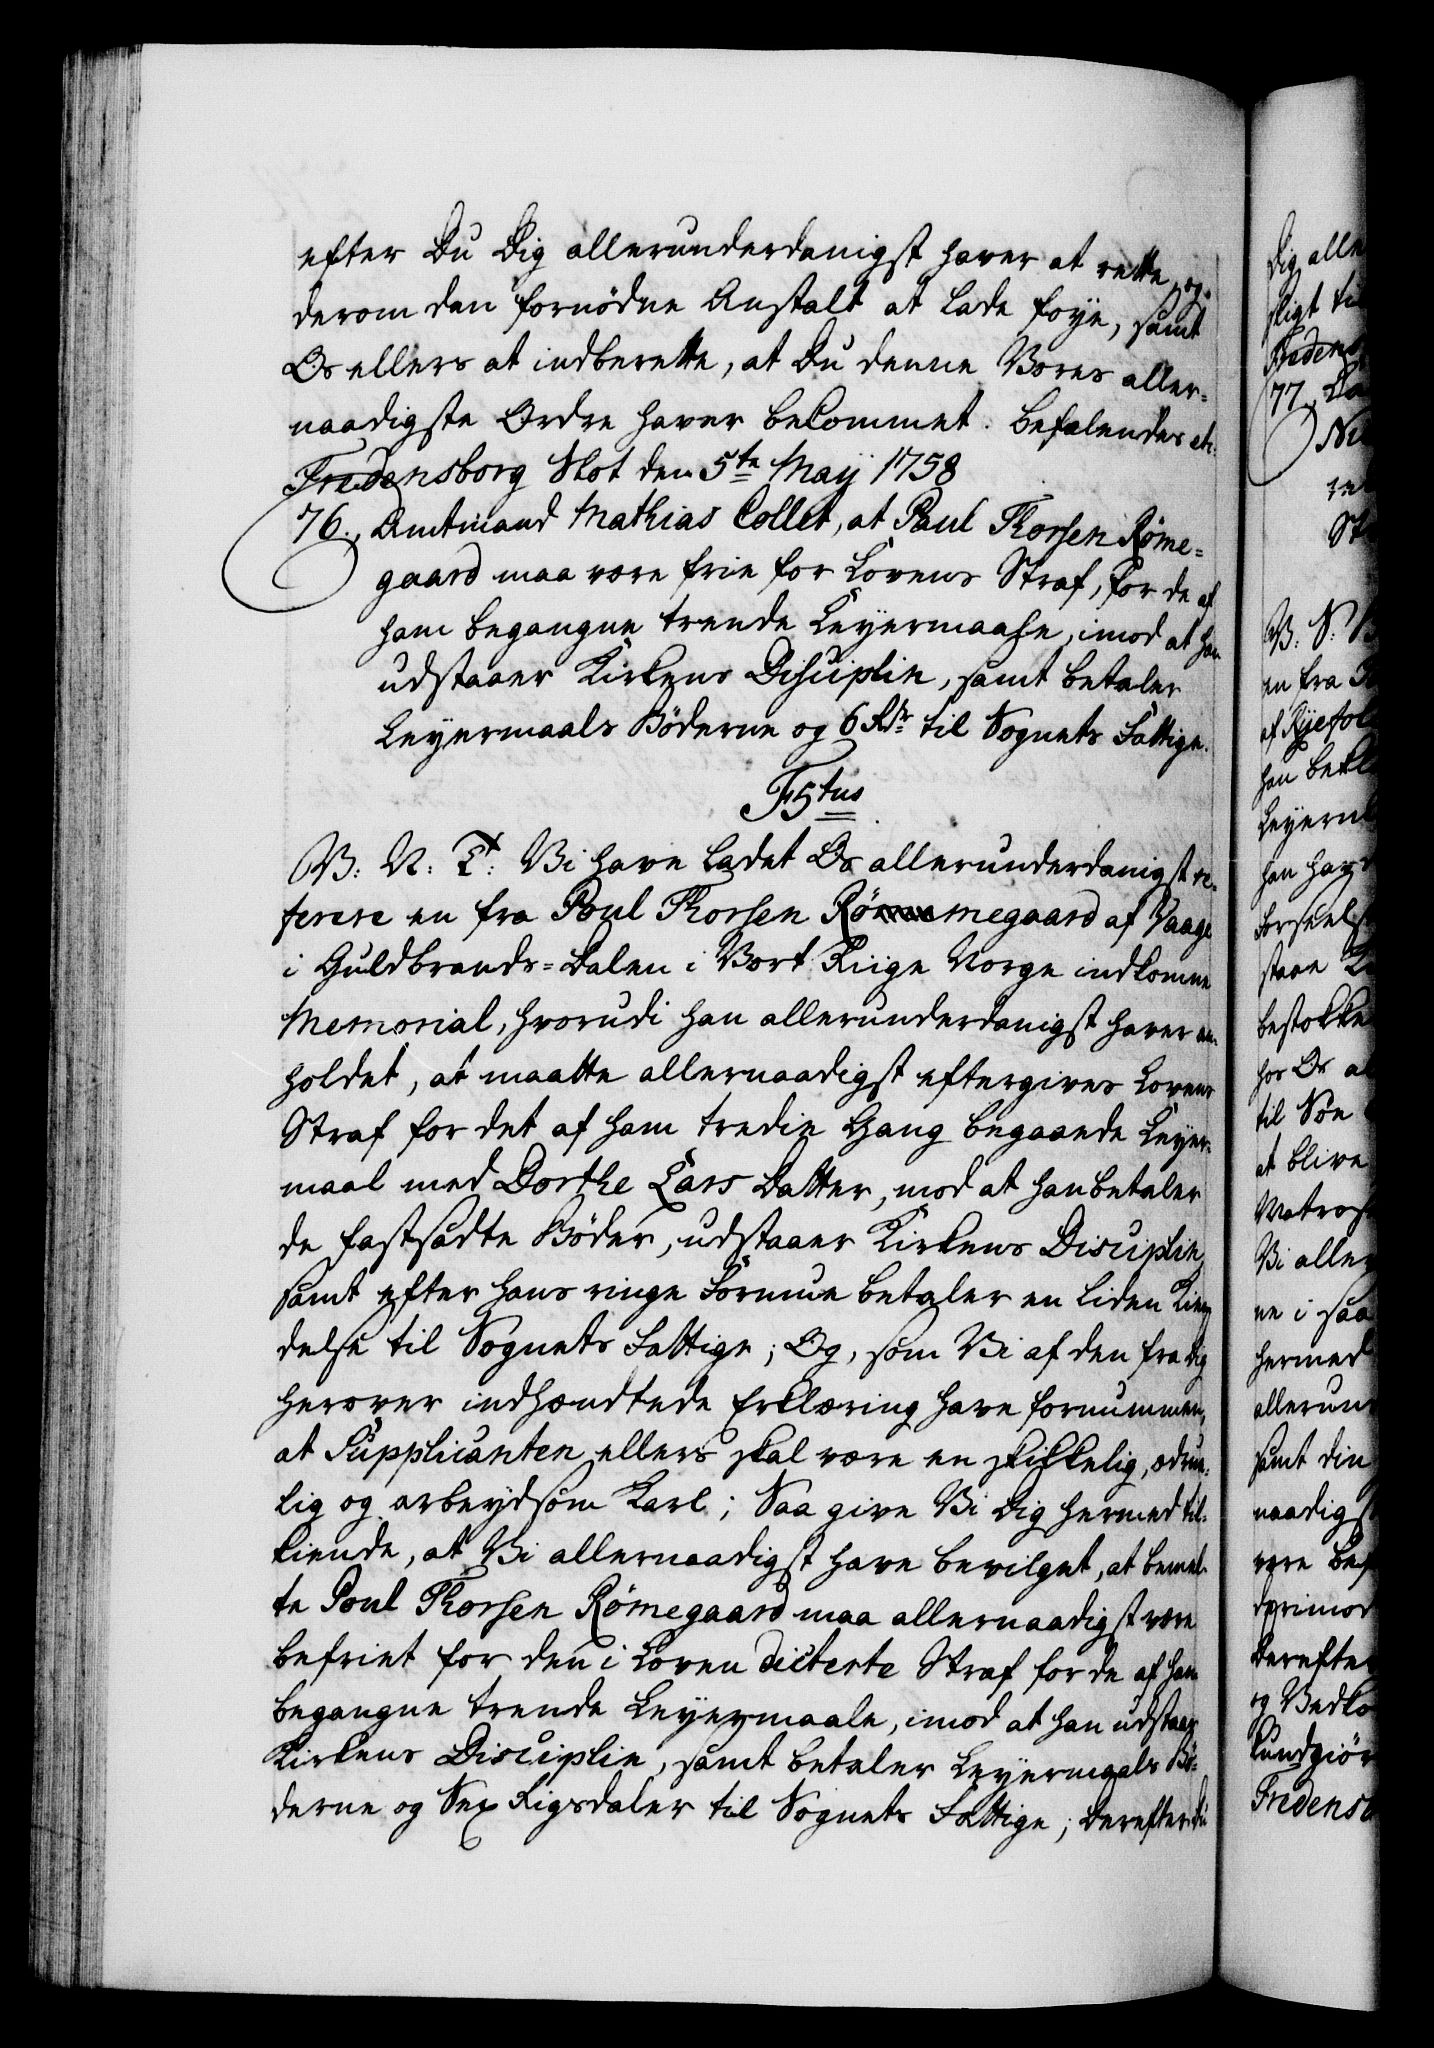 efter Du Dig allerunderdanigst haver at rette, og
derom den fornødne Anstalt at lade føye, samt
Os ellers at indberette, at Du denne Vores aller-
naadigste Ordre haver bekommet. Befalendes etc:
Fredensborg Slot den 5te Maÿ 1758
76., Amtmand Mathias Collet, at Paul Thorsen Røme-
gaard maa være frie for Lovens Straf, for de af
ham begangne trende Leÿermaale, imod at han
udstaaer Kirkens Disciplin, samt betaler
Leyermaals Bøderne og 6 Rdr til Sognets Fattige.
F5tus
V: N: T: Vi have ladet Os allerunderdanigst re-
ferere en fra Poul Thorsen Rømegaard af Vaage
i Guldbrands-Dalen i Vort Riige Norge indkomne
Memorial, hvorudi han allerunderdanigst haver an-
holdet, at maatte allernaadigst eftergives Lovens
Straf for det af ham tredie Gang begaaede Leyer-
maal med Dorthe Lars Datter, mod at han betaler
de fastsadte Bøder, udstaaer Kirkens Disciplin
samt efter hans ringe Formue betaler en liden Kien-
delse til Sognets Fattige; Og, som Vi af den fra Dig
herover indhændtede Erklæring have fornummen,
at Supplicanten ellers skal være en skikkelig, ædrue-
lig og arbeydsom Karl; Saa give Vi Dig hermed til-
kiende, at Vi allernaadigst have bevilget, at bemel-
te Poul Thorsen Rømegaard maa allernaadigst være
befriet for den i Loven dicterte Straf for de af ham
begangne trende Leyermaale, imod at han udstaaer
Kirkens Disciplin, samt betaler Leÿermaals Bø-
derne og Sex Rigsdaler til Sognets Fattige; Derefter Du
Dig alle
77., 
V: N:
en fra
han
til
at blive
Vi aller
ne i saa
hermed
allerun
samt din
naadigst
derimod
Derefter
og Vedko
kundgiør
Fredensb